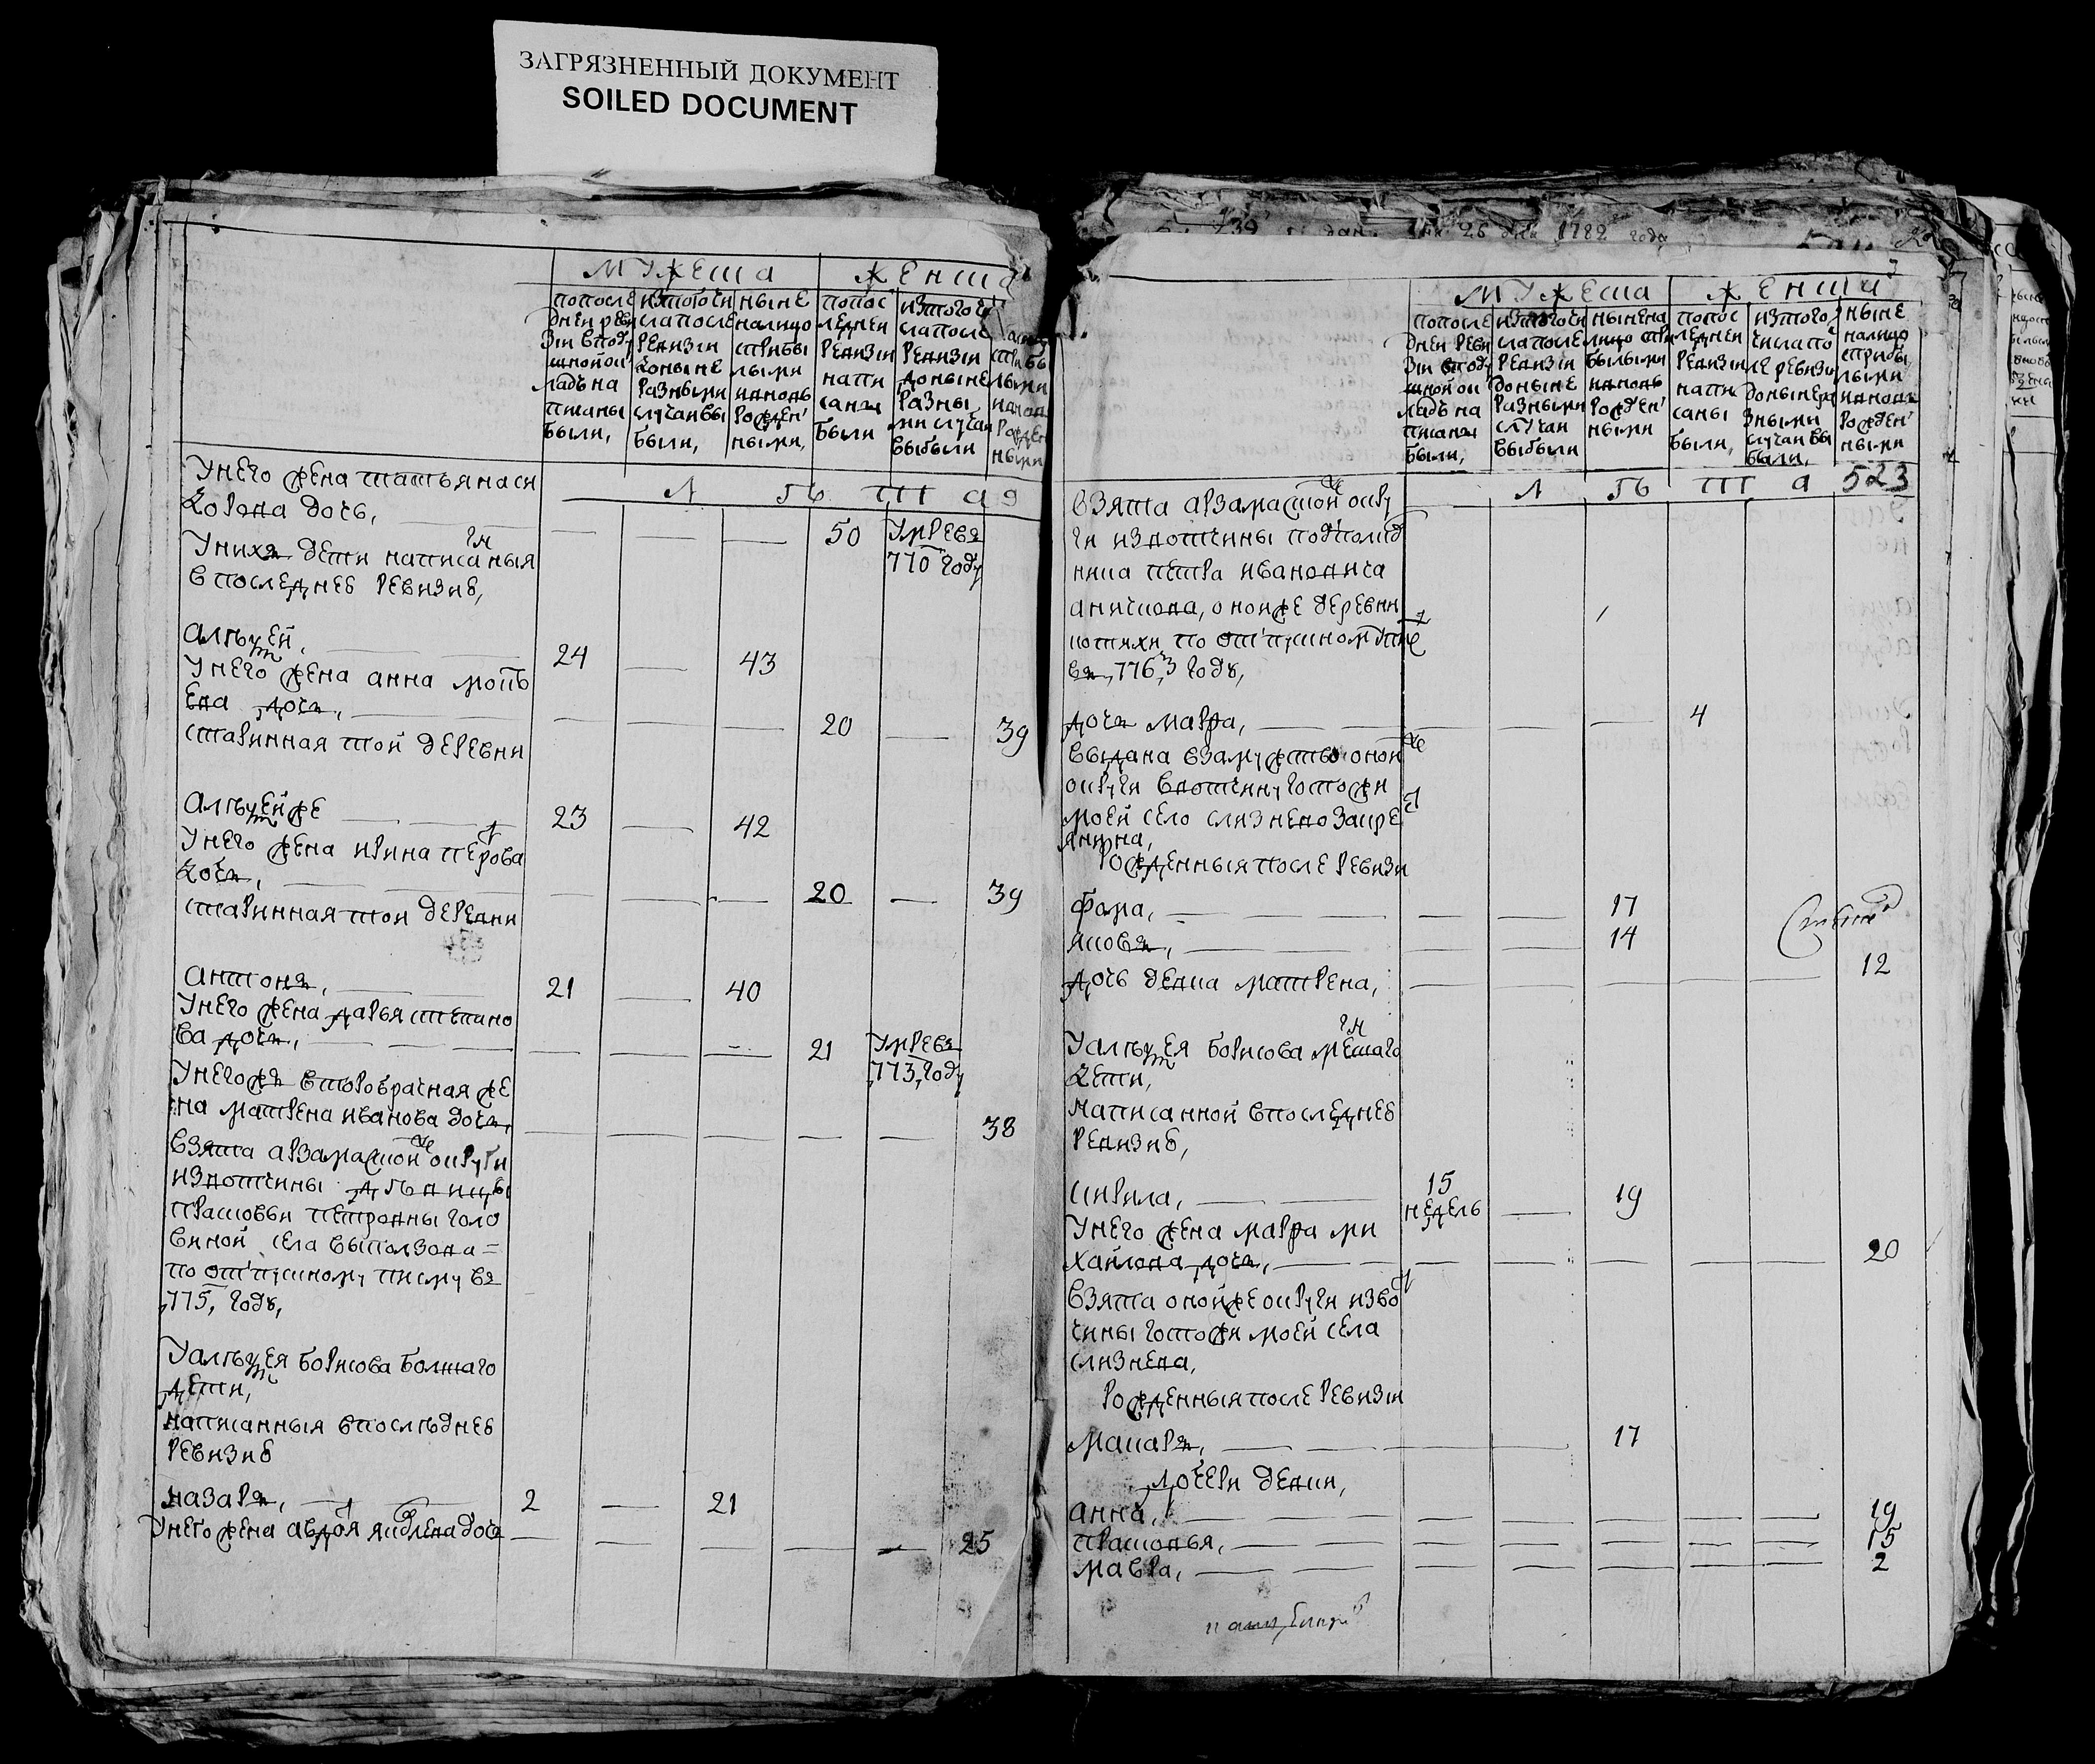 ЗАГРЯЗНЕННЫЙ ДОКУМЕНТ
SOILED DOCUMENT
мужеска
женска
попосле
днеи реви
зии вподу
шной ок
ладъ на
писаны
были,
изтогочи
сла после
ревизии
доныне
разными
случаи вы
были,
ныне
налицо
сприбы
лыми
и вновь
рожден
ными,
попос
леднеи
ревизии
напи
саны
были
изтогоч
сла после
ревизии
доныне
разны
ми случаи
выбыли
лета
унего жена татьяна си
дорова дочь,
50
умре въ
770 году
унихъ дети написаныя
впоследнеѣ ревизиѣ,
алѣксей,
24
43
унего жена анна мокѣ
ева дочь,
20
39
старинная тои деревни
алѣксей же
23
42
унего жена ирина петрова
дочь,
20
39
старинная тои деревни
антонъ,
21
40
унего жена дарья степано
ва дочь,
21
умре въ
773, году
унегожъ второбрачная же
на матрена иванова дочь,
38
взята арзамаской округи
извотчины дѣвицы
прасковьи петровны голо
виной села выползова
по отпускному писму въ
775, годѣ,
уалѣксея борисова болшаго
дети,
написанныя впослѣднеѣ
ревизиѣ
назаръ,
2
21
унего жена авдотя яковлева дочь
25
26 дня 1782 года
мужеска
женски
попосле
днеи реви
зии вподу
шной ок
ладъ на
писаны
были,
изтогочи
сла после
ревизии
доныне
разными
случаи
выбыли
ныне на
лицо при
былыми
и вновь
рожден
ными
попос
леднеи
ревизии
напи
саны
были,
изтого
числа по
ле ревизи
доныне ра
зными
случаи вы
были,
ныне
налицо
сприбы
лыми
и вновь
рожден
ными
лета
523
взята арзамаской окру
ги извотчины подполков
ника петра ивановича
аничкова, оной же деревни
котихи по отпускному пис
въ, 776, годѣ,
дочь мавра,
4
выдана взамужство оной
округи вотчину госпожи
моей село слизнево закре
янина,
рожденныя после ревизи
фома,
17
яковъ,
14
дочь девка матрена,
12
уалѣксея борисова меншаго
дети,
написанной впоследнеѣ
ревизиѣ,
кирила,
15
недель
19
унего жена мавра ми
хайлова дочь,
20
взята оной же округи изво
чины госпожи моей села
слизнева,
рожденныя после ревизии
макаръ,
17
дочери девки,
анна,
19
прасковья,
15
мавра,
2